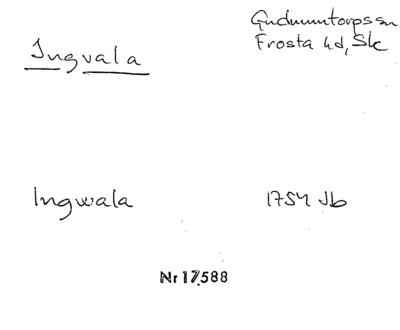 Ingvala
Gudmuntorps sn
Frosta hd, Sk
Ingwala
1754 Jb
Nr 17,588